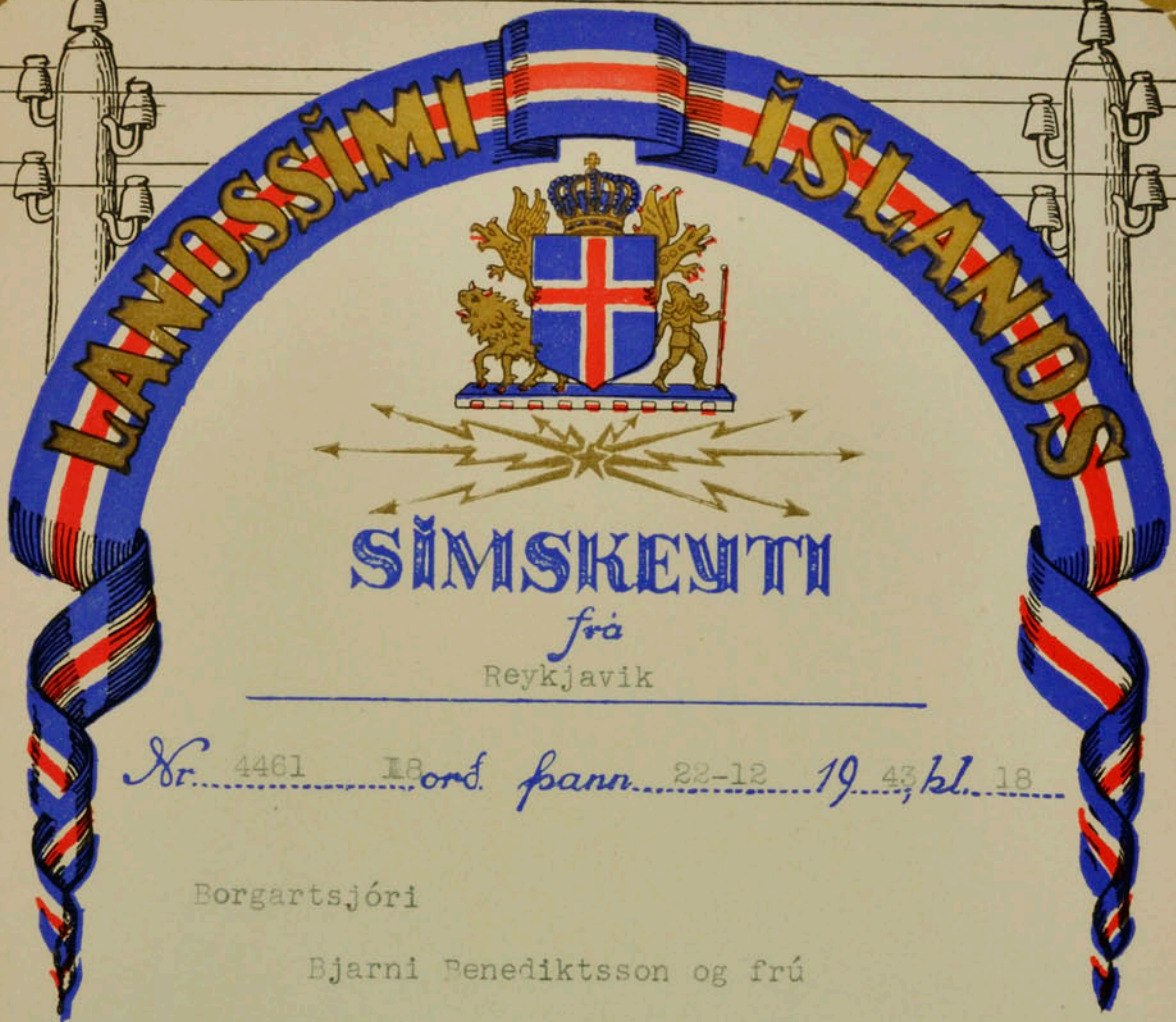 LANDSSÍMI ÍSLANDS
SÍMSKEYTI
frá
Reykjavik
Nr. 4461 18 orð. þann 22-12 19 43, kl. 18
Borgartsjóri
Bjarni Benediktsson og frú